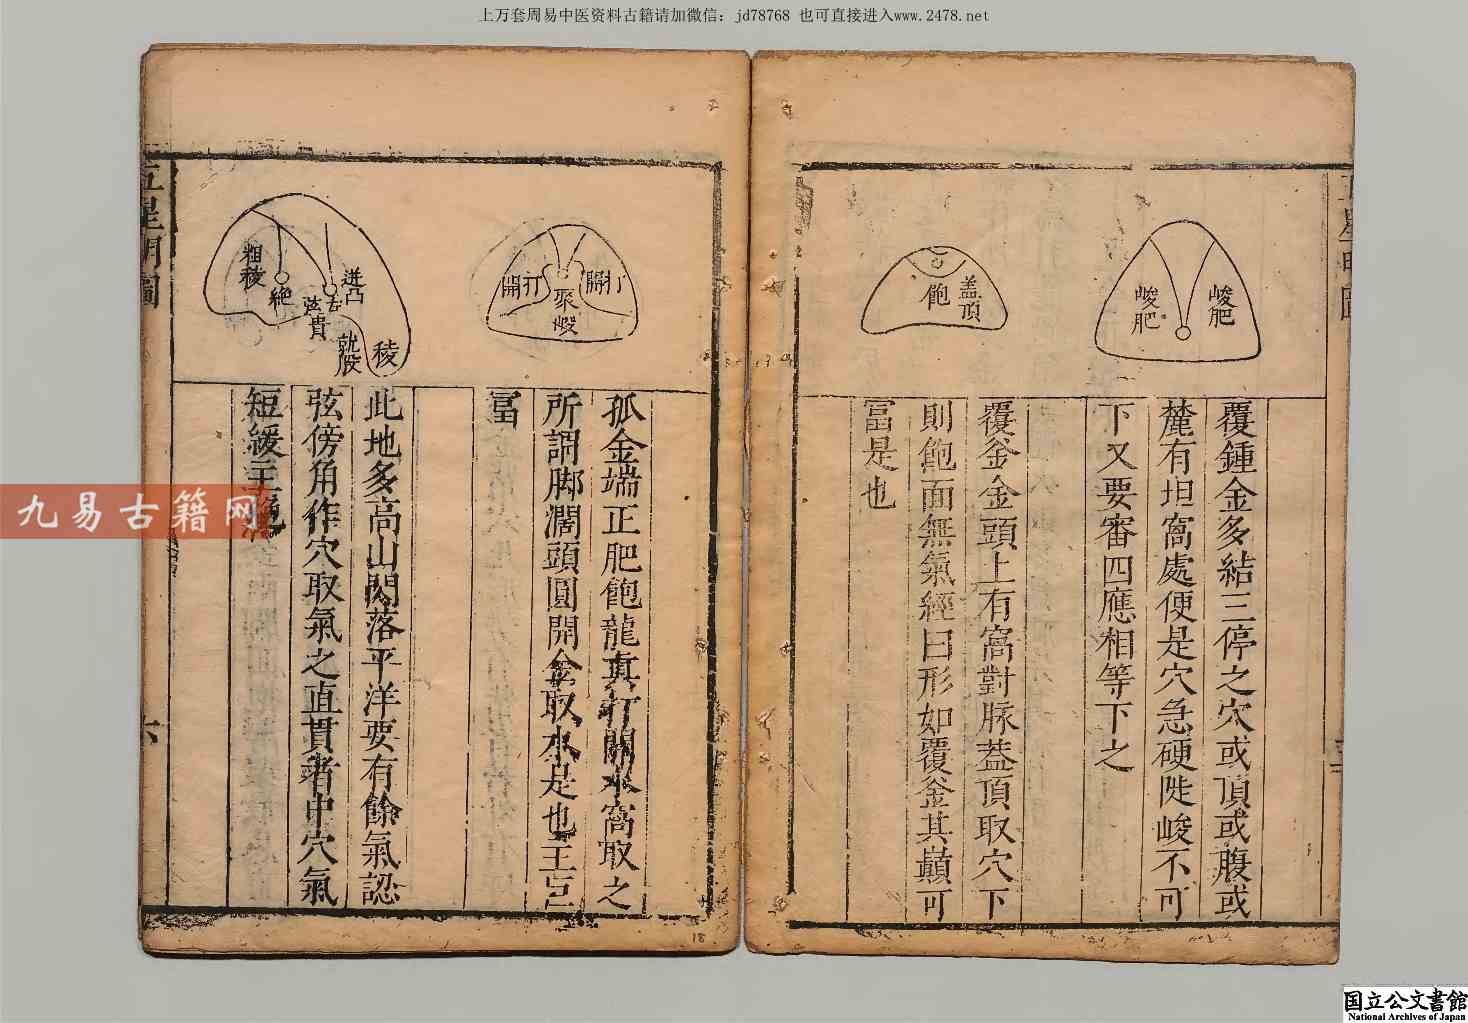 上万套周易中医资料古籍请加微信：jd78768 也可直接进入www.2478.net
峻肥
峻肥
覆鍾金多結三停之穴或頂或腹或
麓有坦窩處便是穴急硬陡峻不可
下又要審四應相等下之
蓋頂
飽
覆釜金頭上有窩對脉蓋頂取穴下
則飽面無氣經曰形如覆釜其巔可
富是也
開打
開打
聚
孤金端正肥飽龍真打開水窩取之
所謂脚濶頭圓開金取水是也主巨
富
迸凸
弦貴
就股
稜
絶
粗稜
此地多高山閃落平洋要有餘氣認
弦傍角作穴取氣之直貫者中穴氣
短緩主
五星明圖
六
18
九易古籍网
国立公文書館
National Archives of Japan